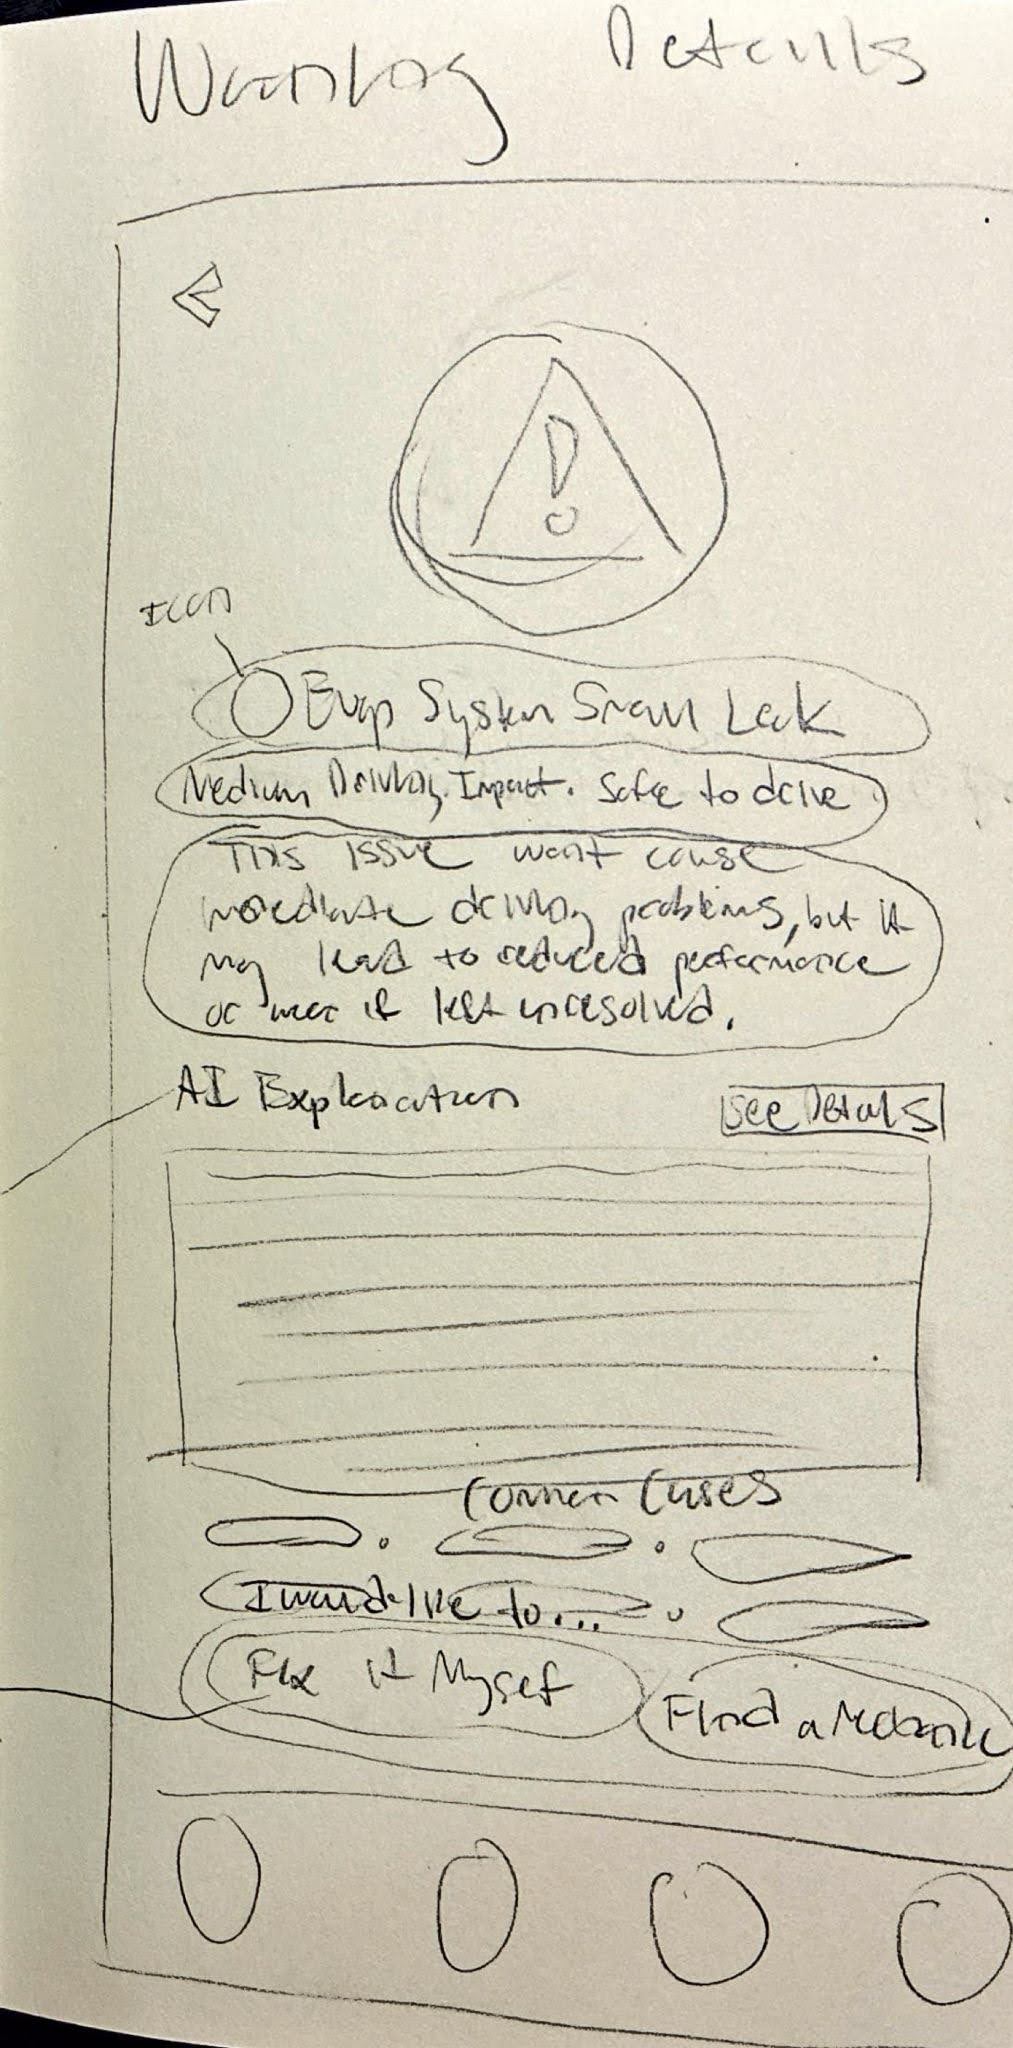 Warning Details
Icon
Evap System Small Leak
Medium Driving Impact. Safe to drive
This issue won't cause
immediate driving problems, but it
may lead to reduced performance
or wear if left unresolved.
AI Explanation
See Details
Common Causes
I would like to...
Fix it Myself
Find a Mechanic